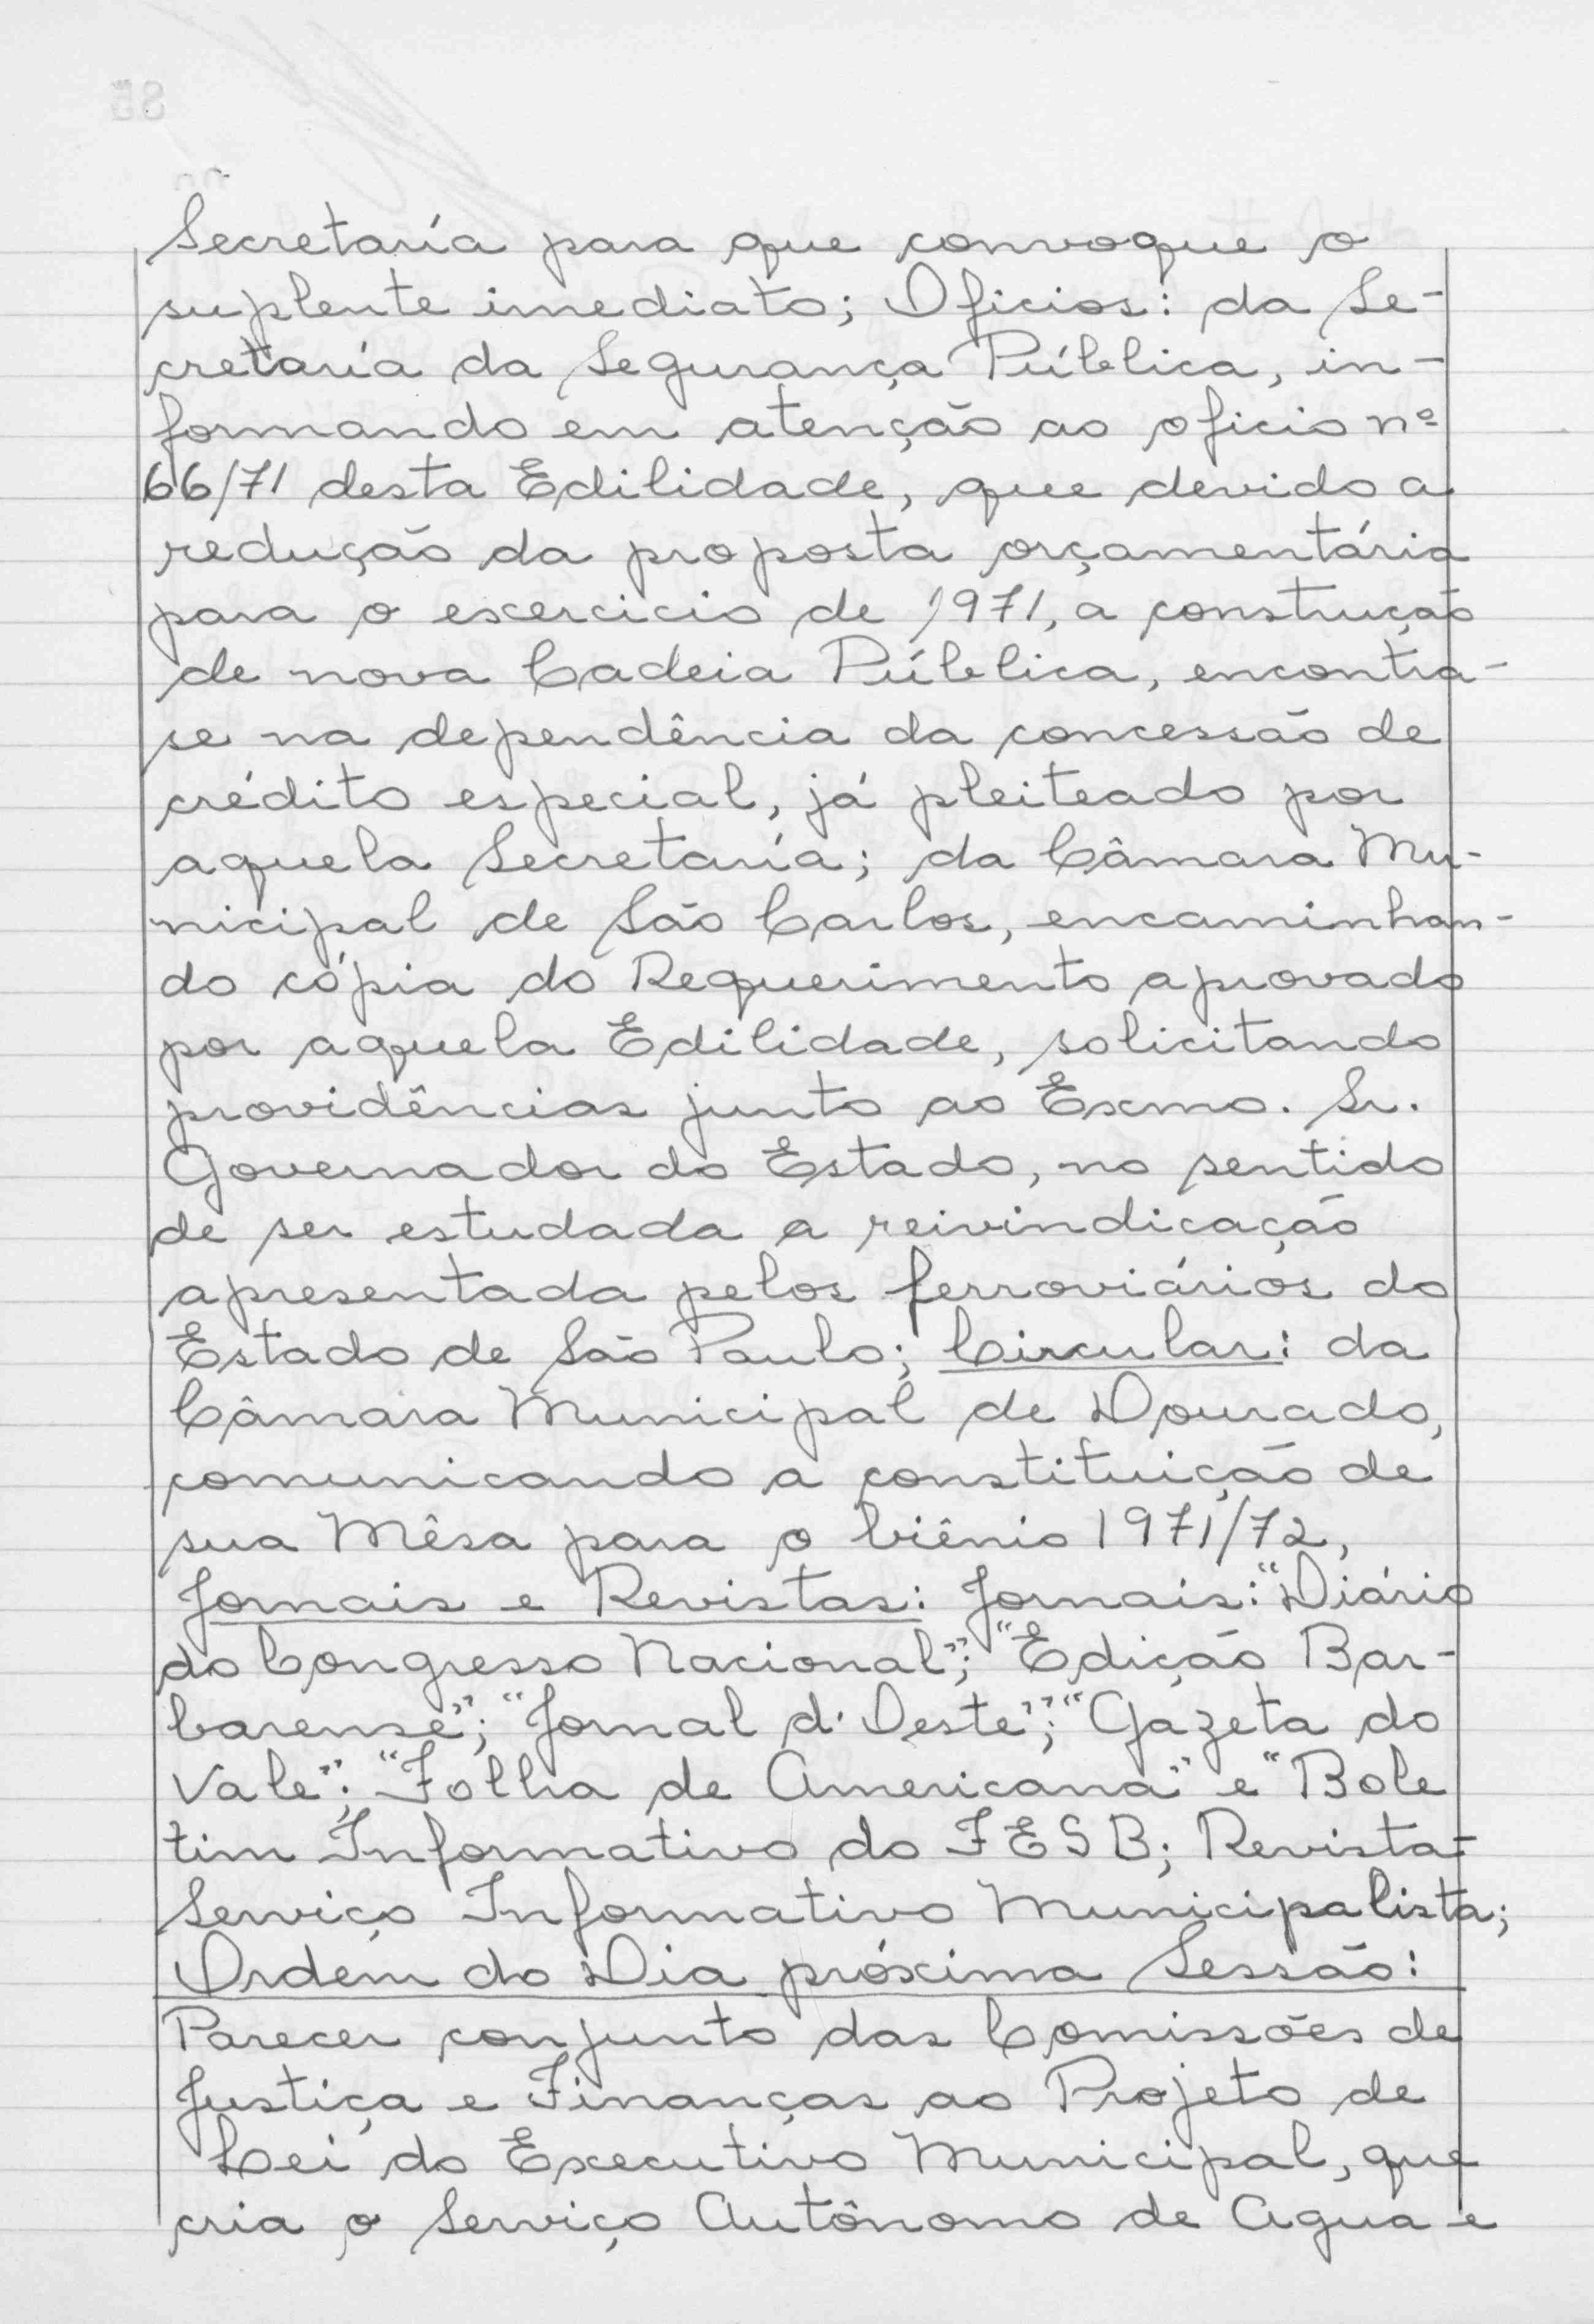 Secretaría para que convoque o
suplente imediato; Oficios: da Se-
cretaría da Segurança Pública, in-
formando em atenção ao oficio nº
66/71 desta Edilidade, que devido a
redução da proposta orçamentária
para o exercicio de 1971, a construção
de nova Cadeia Pública, encontra-
se na dependência da concessão de
crédito especial, já pleiteado por
aquela Secretaría; da Câmara Mu-
nicipal de São Carlos, encaminhan-
do cópia do Requerimento aprovado
por aquela Edilidade, solicitando
providências junto ao Exmo. Sr.
Governador do Estado, no sentido
de ser estudada a reivindicação
apresentada pelos ferroviários do
Estado de São Paulo; Circular: da
Câmara Municipal de Dourado,
comunicando a constituição de
sua Mêsa para o biênio 1971/72,
Jornais e Revistas: Jornais: "Diário
do Congresso Nacional"; "Edição Bar-
barense"; "Jornal d'Oeste"; "Gazeta do
Vale"; "Folha de Americana" e "Bole
tim Informativo do FESB; Revista-
Serviço Informativo Municipalista;
Ordem do Dia próxima Sessão:
Parecer conjunto das Comissões de
Justiça e Finanças ao Projeto de
Lei do Executivo Municipal, que
cria o Serviço Autônomo de Agua e